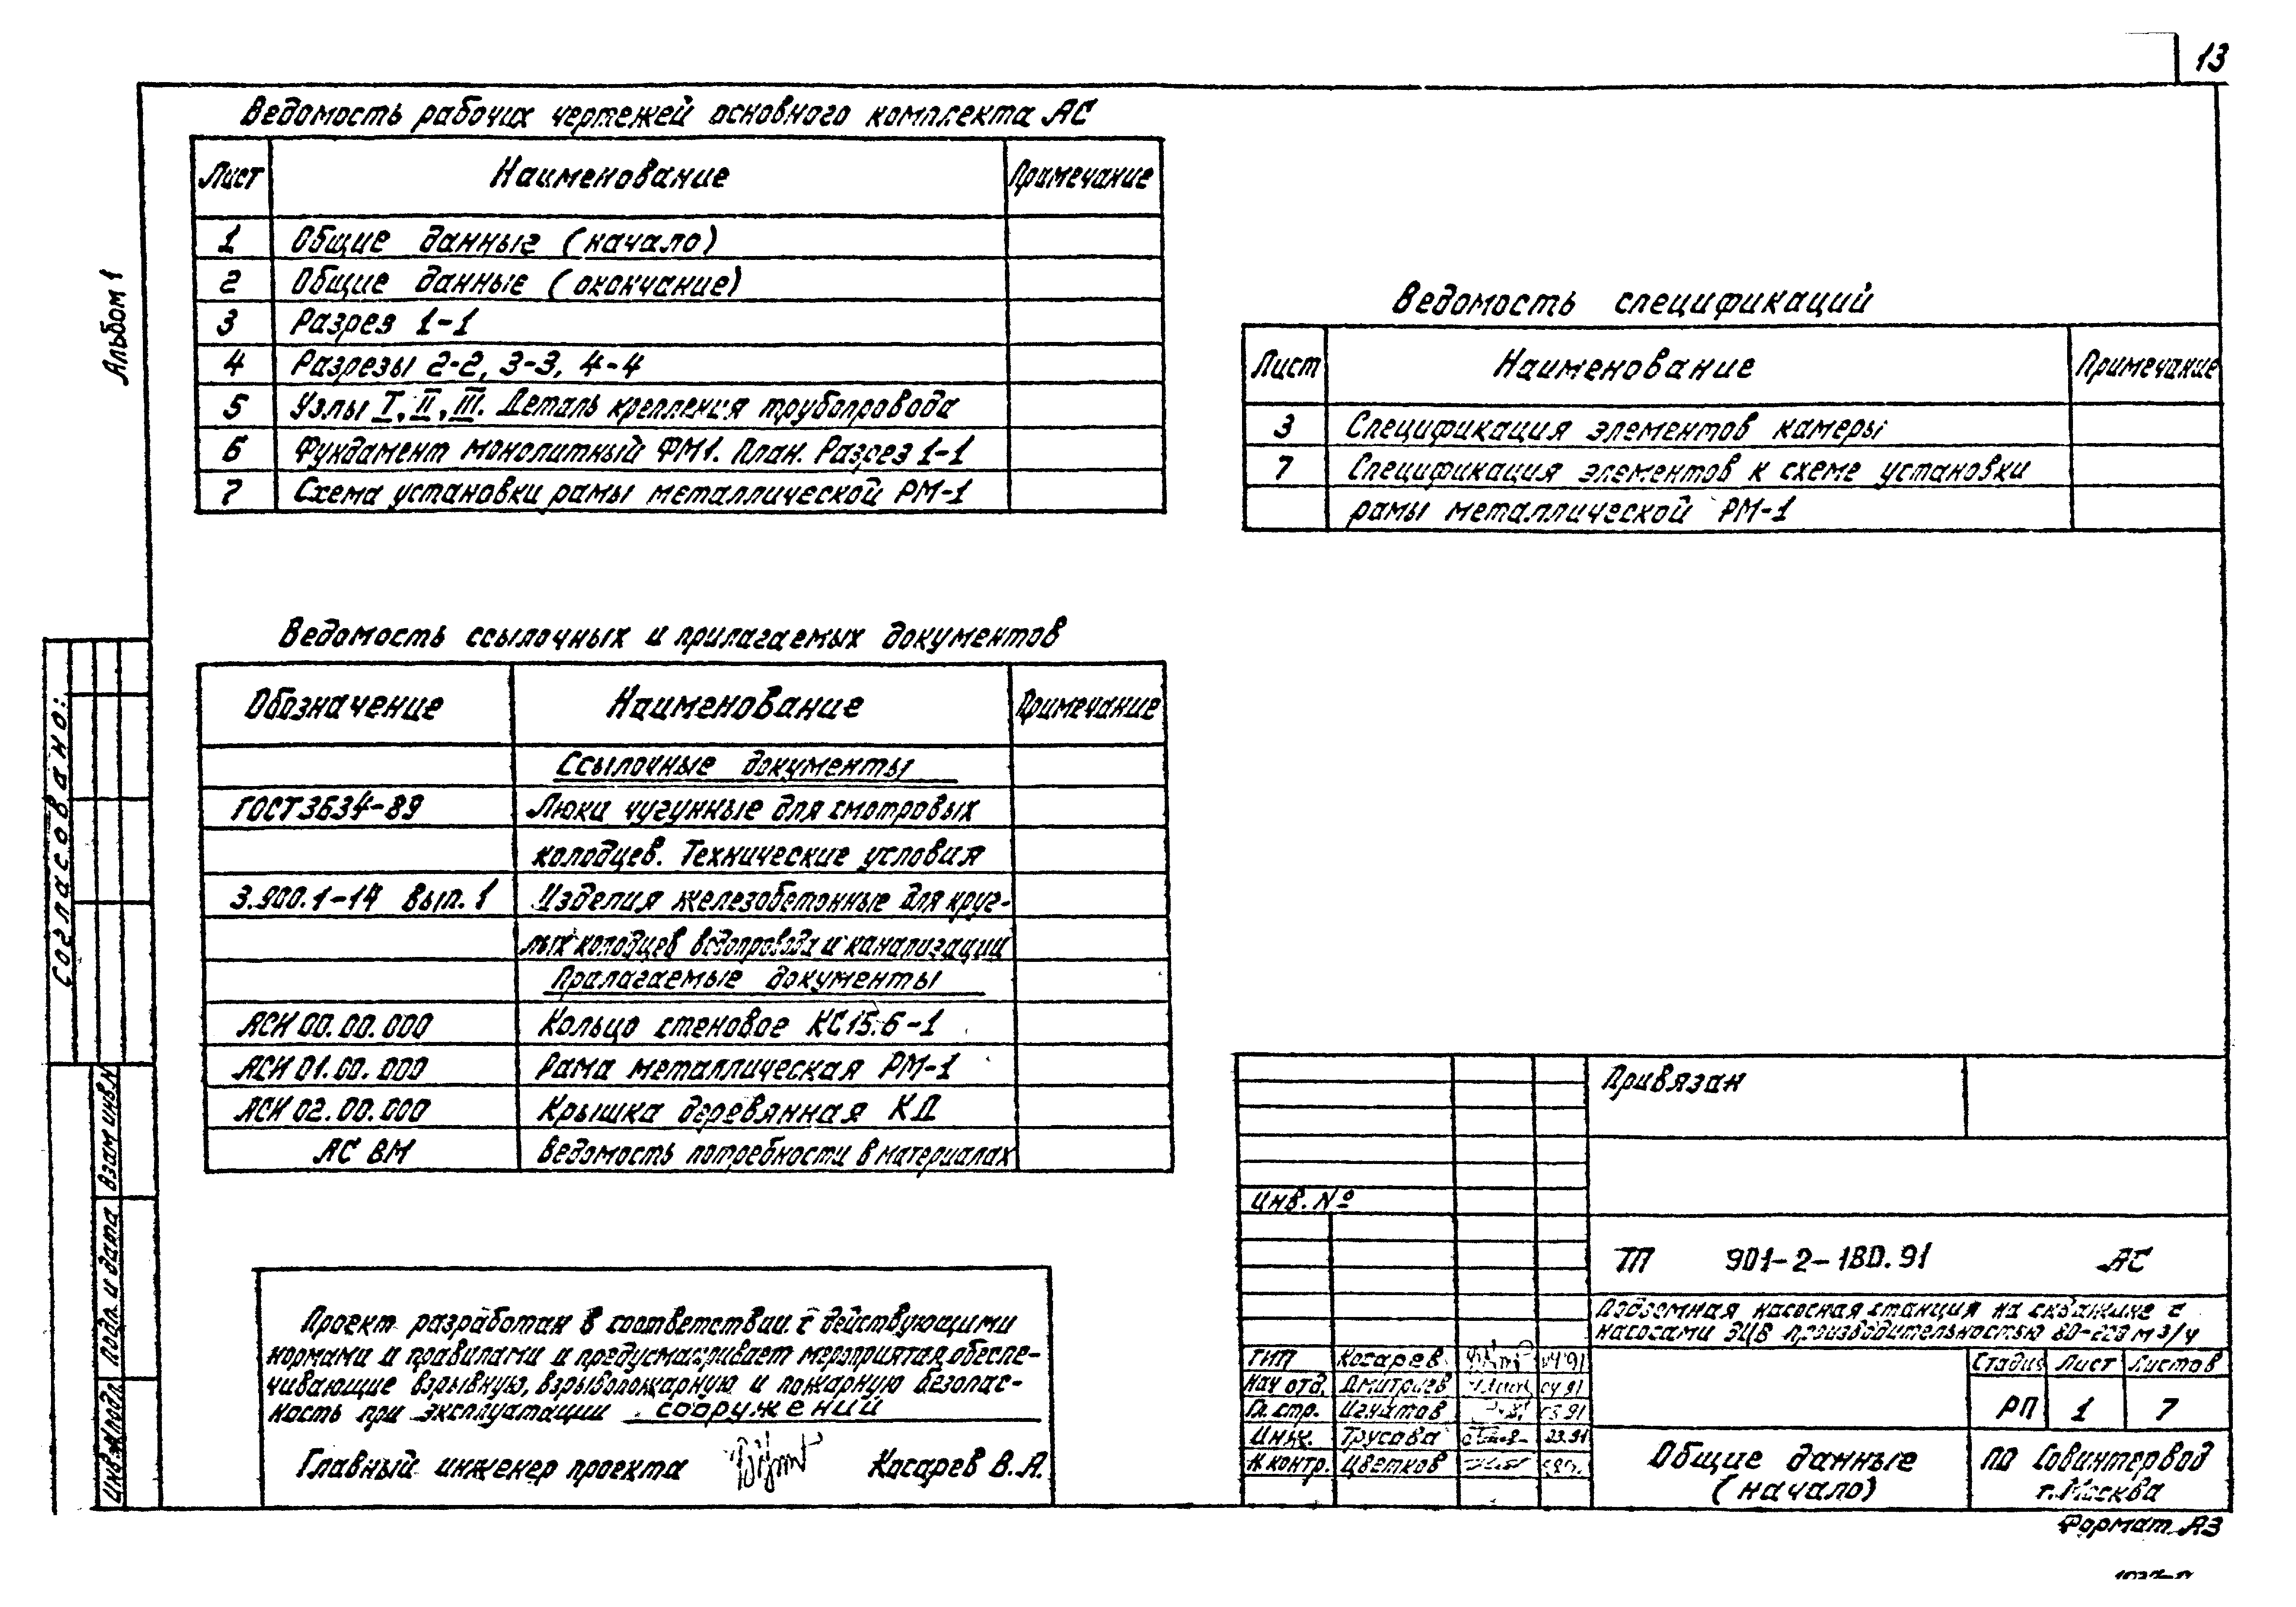 13
Альбом 1
Ведомость рабочих чертежей основного комплекта АС
Лист Наименование Примечание
1 Общие данные (начало)
2 Общие данные (окончание)
3 Разрез 1-1
4 Разрезы 2-2, 3-3, 4-4
5 Узлы I, II, III. Деталь крепления трубопровода
6 Фундамент монолитный ФМ1. План. Разрез 1-1
7 Схема установки рамы металлической РМ-1
Ведомость спецификаций
Лист Наименование Примечание
3 Спецификация элементов камеры
7 Спецификация элементов к схеме установки
рамы металлической РМ-1
Ведомость ссылочных и прилагаемых документов
Обозначение Наименование Примечание
Ссылочные документы
ГОСТ 3634-89 Люки чугунные для смотровых
колодцев. Технические условия
3.900.1-14 вып. 1 Изделия железобетонные для круг-
лых колодцев водопровода и канализации
Прилагаемые документы
АСИ 00.00.000 Кольцо стеновое КС15.6-1
АСИ 01.00.000 Рама металлическая РМ-1
АСИ 02.00.000 Крышка деревянная КД
АС ВМ Ведомость потребности в материалах
Согласовано:
Взам инв.N
Подп. и дата
Инв.N подл.
Проект разработан в соответствии с действующими
нормами и правилами и предусматривает мероприятия, обеспе-
чивающие взрывную, взрывопожарную и пожарную безопас-
ность при эксплуатации сооружений
Главный инженер проекта Косарев В.А.
Привязан
Инв. №
ТП 901-2-180.91 АС
Подземная насосная станция на скважине с
насосами ЭЦВ производительностью м3/ч
ГИП Косарев 04.91
Нач отд. Дмитриев 04.91
Гл. стр. Игнатов 03.91
Инж. Трусова 03.91
Н.контр. Цветков
Стадия Лист Листов
РП 1 7
Общие данные
(начало)
ПО Совинтервод
г. Москва
Формат А3